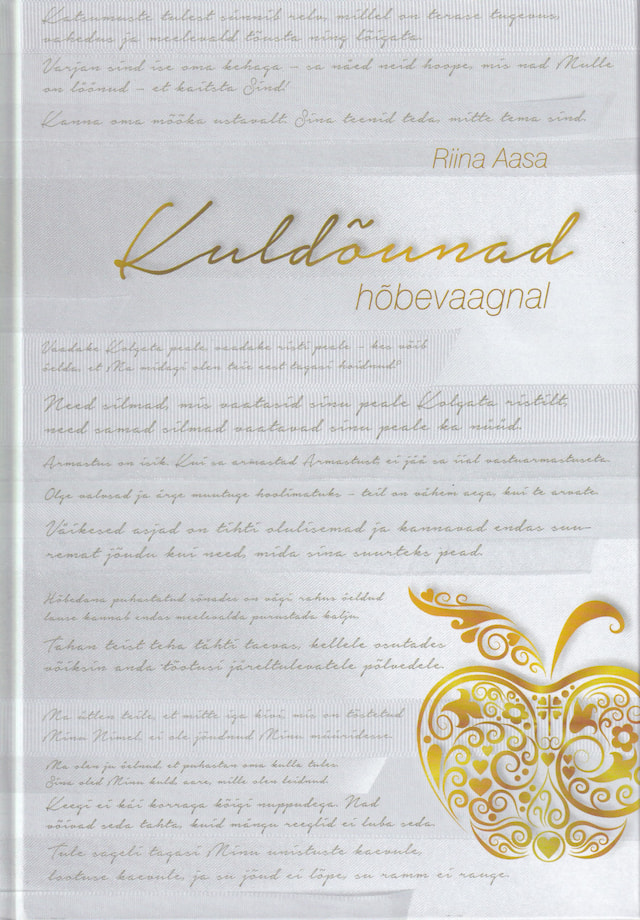 Katsumuste tulest sünnib relv, millel on terase tugevus,
vahedus ja meelevald tõusta ning lõigata.
Varjan sind ise oma kehaga – sa näed neid hoope, mis nad Mulle
on löönud – et kaitsta Sind!
Kanna oma mõõka ustavalt. Sina teenid teda, mitte tema sind.
Riina Aasa
Kuldõunad
hõbevaagnal
Vaadake Kolgata peale, vaadake risti peale – kes võib
öelda, et Ma midagi olen teie eest tagasi hoidnud?
Need silmad, mis vaatasid sinu peale Kolgata ristilt,
need samad silmad vaatavad sinu peale ka nüüd.
Armastus on isik. Kui sa armastad Armastust, ei jää sa iial vastuarmastuseta.
Olge valvsad ja ärge muutuge hoolimatuks – teil on vähem aega, kui te arvate.
Väikesed asjad on tihti olulisemad ja kannavad endas suu-
remat jõudu kui need, mida sina suurteks pead.
Hõbedana puhastatud sõnadel on vägi, rahus öeldud
lause kannab endas meelevalda purustada kalju.
Tahan teist teha tähti taevas, kellele osutades
võiksin anda tõotusi järeltulevatele põlvedele.
Ma ütlen teile, et mitte iga kivi, mis on tõstetud
Minu Nimel, ei ole jõudnud Minu müüridesse.
Ma olen ju öelnud, et puhastan oma kulla tules.
Sina oled Minu kuld, aare, mille olen leidnud.
Keegi ei käi korraga kõigi nuppudega. Nad
võivad seda tahta, kuid mängu reeglid ei luba seda.
Tule sageli tagasi Minu unistuste kaevule,
lootuse kaevule, ja su jõud ei lõpe, su ramm ei rauge.